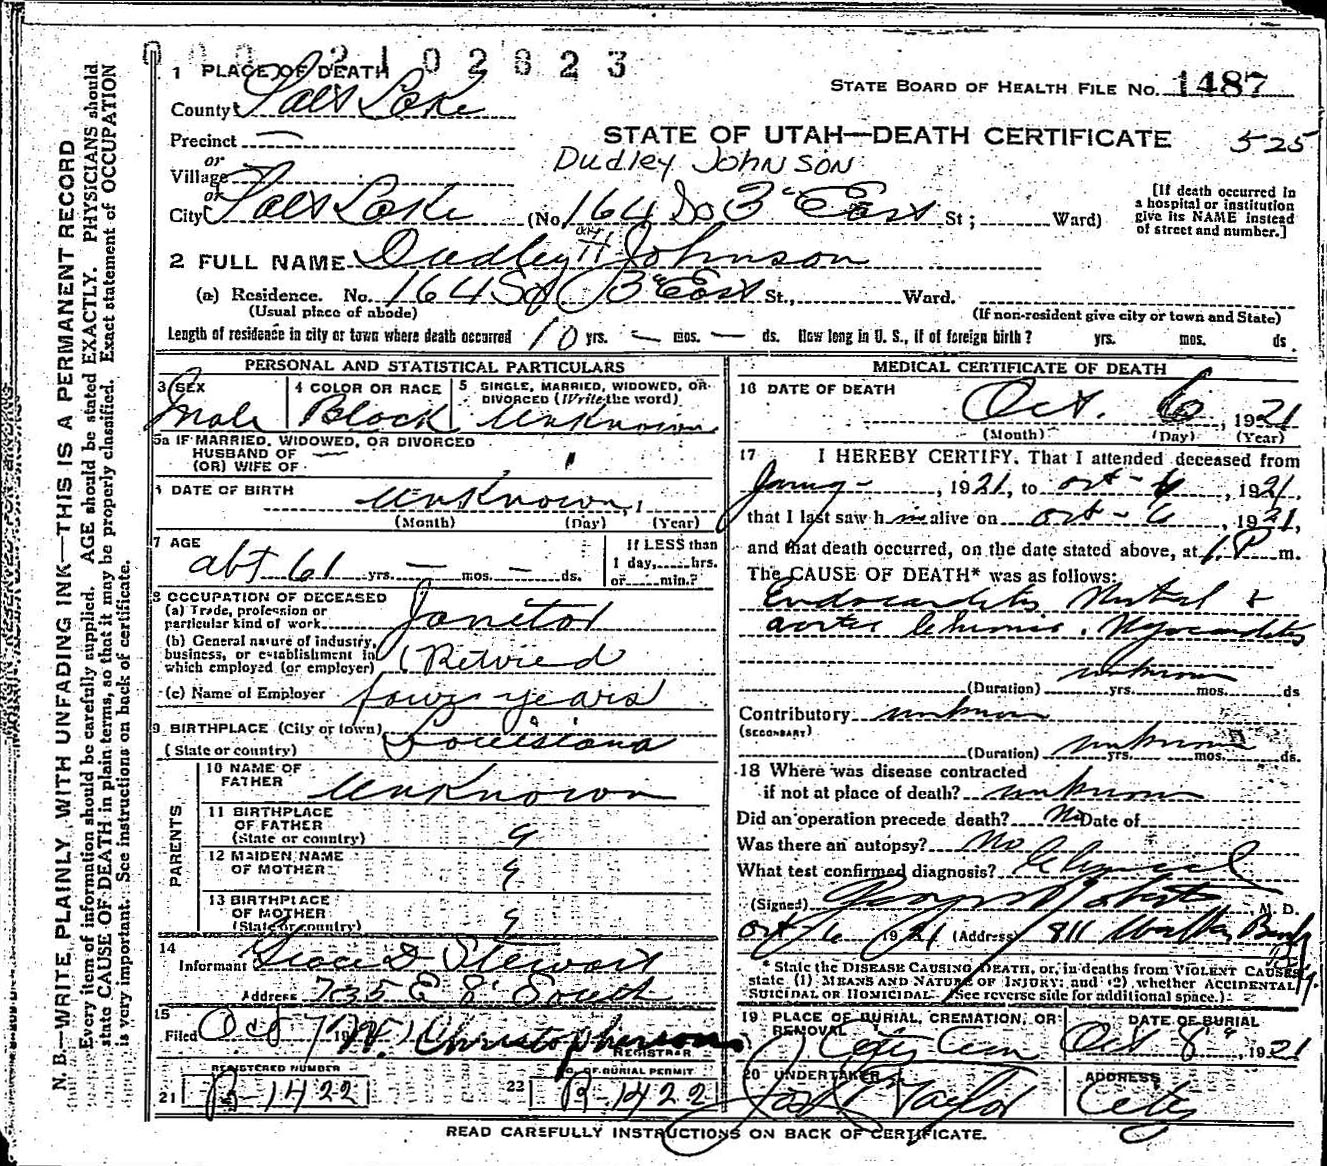 0 0 0 2 1 0 2 8 2 3
1 PLACE OF DEATH
STATE BOARD OF HEALTH FILE NO. 1487
County Salt Lake
STATE OF UTAH—DEATH CERTIFICATE 525
Precinct —
Dudley Johnson
or
Village
or
City Salt Lake (No 164 So 3rd East St; Ward)
[If death occurred in
a hospital or institution
give its NAME instead
of street and number.]
2 FULL NAME Dudley H Johnson
(a) Residence. No. 164 So 3rd East St., Ward.
(Usual place of abode) (If non-resident give city or town and State)
Length of residence in city or town where death occurred 10 yrs. — mos. — ds. How long in U. S., if of foreign birth? yrs. mos. ds.
PERSONAL AND STATISTICAL PARTICULARS
3 SEX
Male
4 COLOR OR RACE
Black
5 SINGLE, MARRIED, WIDOWED, OR
DIVORCED (Write the word)
Unknown
5a IF MARRIED, WIDOWED, OR DIVORCED
HUSBAND OF —
(OR) WIFE OF
DATE OF BIRTH
Unknown, 1
(Month) (Day) (Year)
7 AGE
abt 61 yrs. — mos. — ds.
If LESS than
1 day, hrs.
or min.?
8 OCCUPATION OF DECEASED
(a) Trade, profession or
particular kind of work Janitor
(b) General nature of industry,
business, or establishment in
which employed (or employer) (Retired
(c) Name of Employer four years
9 BIRTHPLACE (City or town)
(State or country) Louisiana
PARENTS
10 NAME OF
FATHER Unknown
11 BIRTHPLACE
OF FATHER
(State or country)
12 MAIDEN NAME
OF MOTHER
13 BIRTHPLACE
OF MOTHER
(State or country)
14
Informant Grace D Stewart
Address 735 E 8" South
15
Filed Oct 7 19 Christopherson
REGISTRAR
REGISTERED NUMBER
21 B-1422
NO. OF BURIAL PERMIT
22 B-1422
MEDICAL CERTIFICATE OF DEATH
16 DATE OF DEATH
Oct. 6, 1921
(Month) (Day) (Year)
17 I HEREBY CERTIFY, That I attended deceased from
Jany -, 1921, to Oct - 6, 1921,
that I last saw him alive on Oct - 6, 1921,
and that death occurred, on the date stated above, at 1 P m.
The CAUSE OF DEATH* was as follows:
Endocarditis Mitral &
aortic Chronic. Myocarditis
unknown
(Duration) yrs. mos. ds
Contributory unknown
(SECONDARY)
(Duration) unknown yrs. mos. ds.
18 Where was disease contracted
if not at place of death? unknown
Did an operation precede death? No Date of
Was there an autopsy? No
What test confirmed diagnosis? Clinical
(Signed) M. D.
Oct 6 1921 (Address) 811 Walker Bank
* State the DISEASE CAUSING DEATH, or, in deaths from VIOLENT CAUSES,
state (1) MEANS AND NATURE OF INJURY; and (2) whether ACCIDENTAL,
SUICIDAL or HOMICIDAL. (See reverse side for additional space.)
19 PLACE OF BURIAL, CREMATION, OR
REMOVAL
City Cem
DATE OF BURIAL
Oct 8, 1921
20 UNDERTAKER
Jos Taylor
ADDRESS
City
READ CAREFULLY INSTRUCTIONS ON BACK OF CERTIFICATE.
N. B.—WRITE PLAINLY, WITH UNFADING INK—THIS IS A PERMANENT RECORD
Every item of information should be carefully supplied. AGE should be stated EXACTLY. PHYSICIANS should
state CAUSE OF DEATH in plain terms, so that it may be properly classified. Exact statement of OCCUPATION
is very important. See instructions on back of certificate.